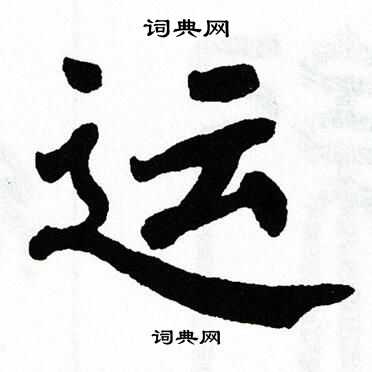 词典网
运
词典网